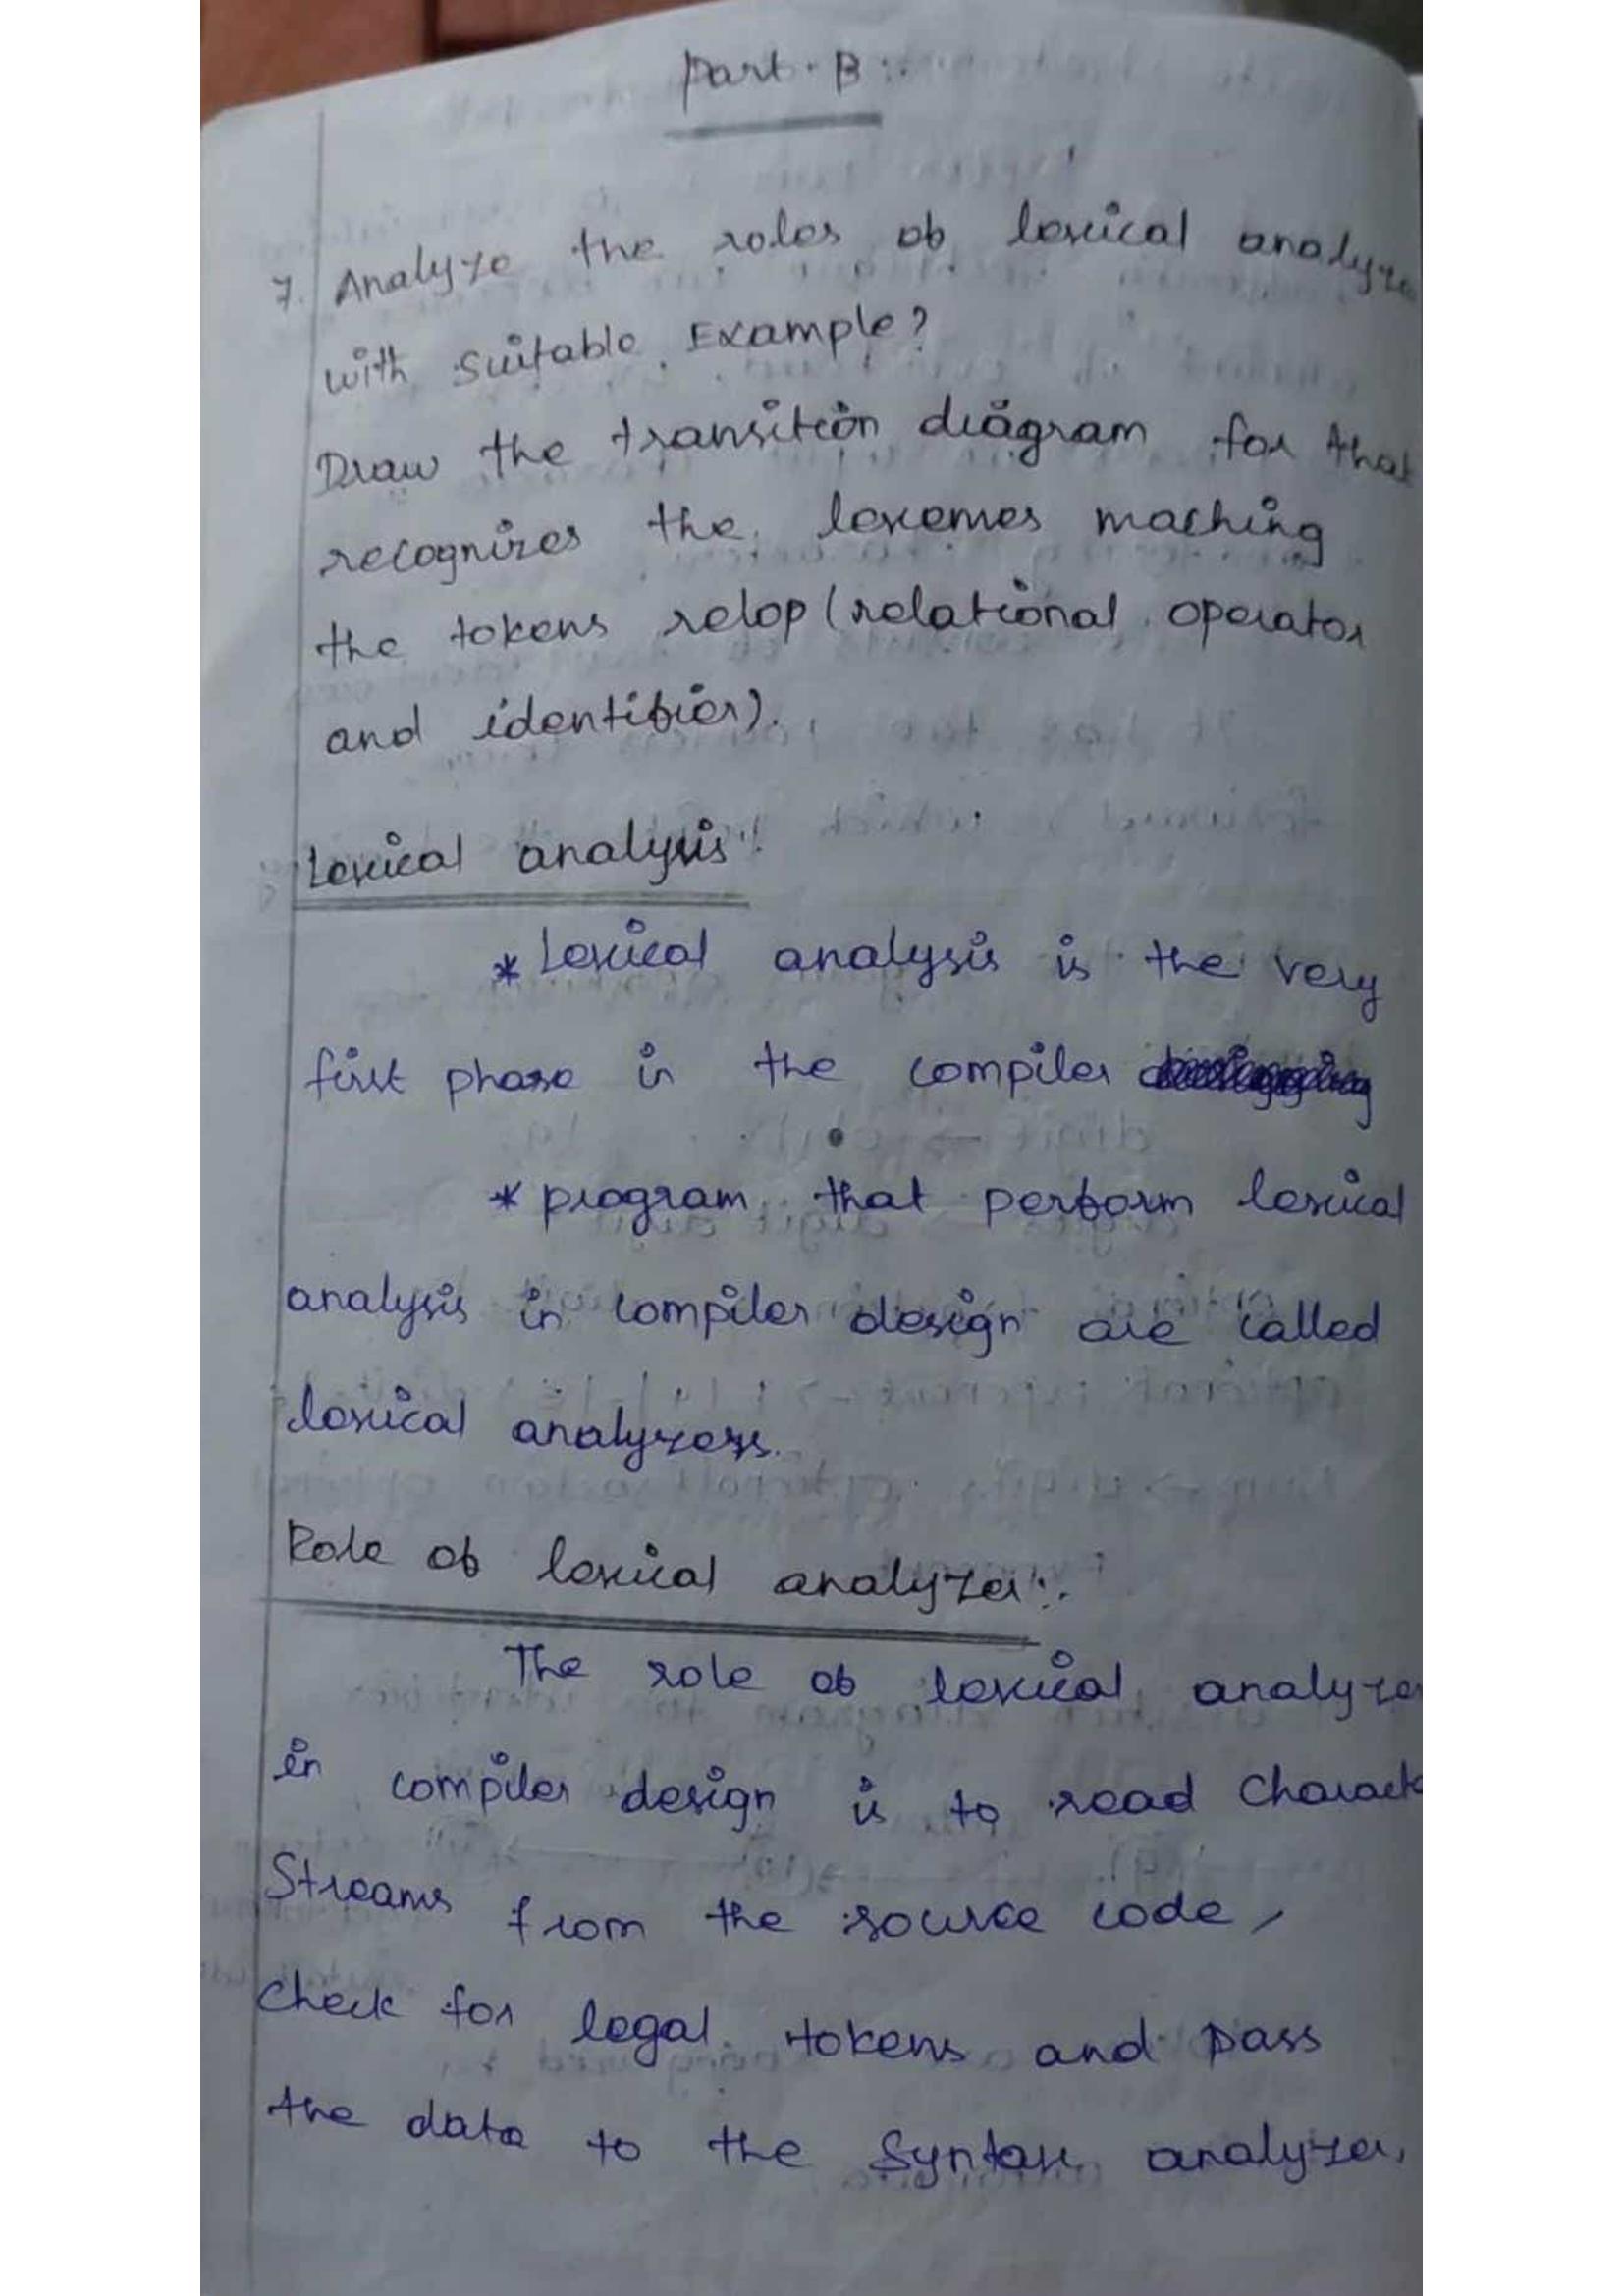 Part-B:-
7. Analyze the roles of lexical analyze
with suitable Example?
Draw the transition diagram for that
recognizes the lexemes maching
the tokens relop (relational operator
and identifier).
Lexical analysis:
* Lexical analysis is the very
first phase in the compiler
* program that perform lexical
analysis in compiler design are called
lexical analyzers.
Role of lexical analyzer:-
The role of lexical analyzer
in compiler design is to read charact
Streams from the source code,
check for legal tokens and pass
the data to the Syntax analyzer,